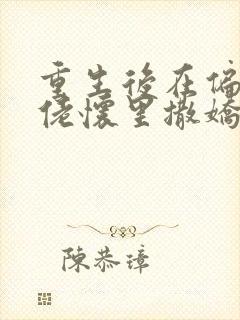 重生後在偏
佬懷里撒嬌
陳恭璋